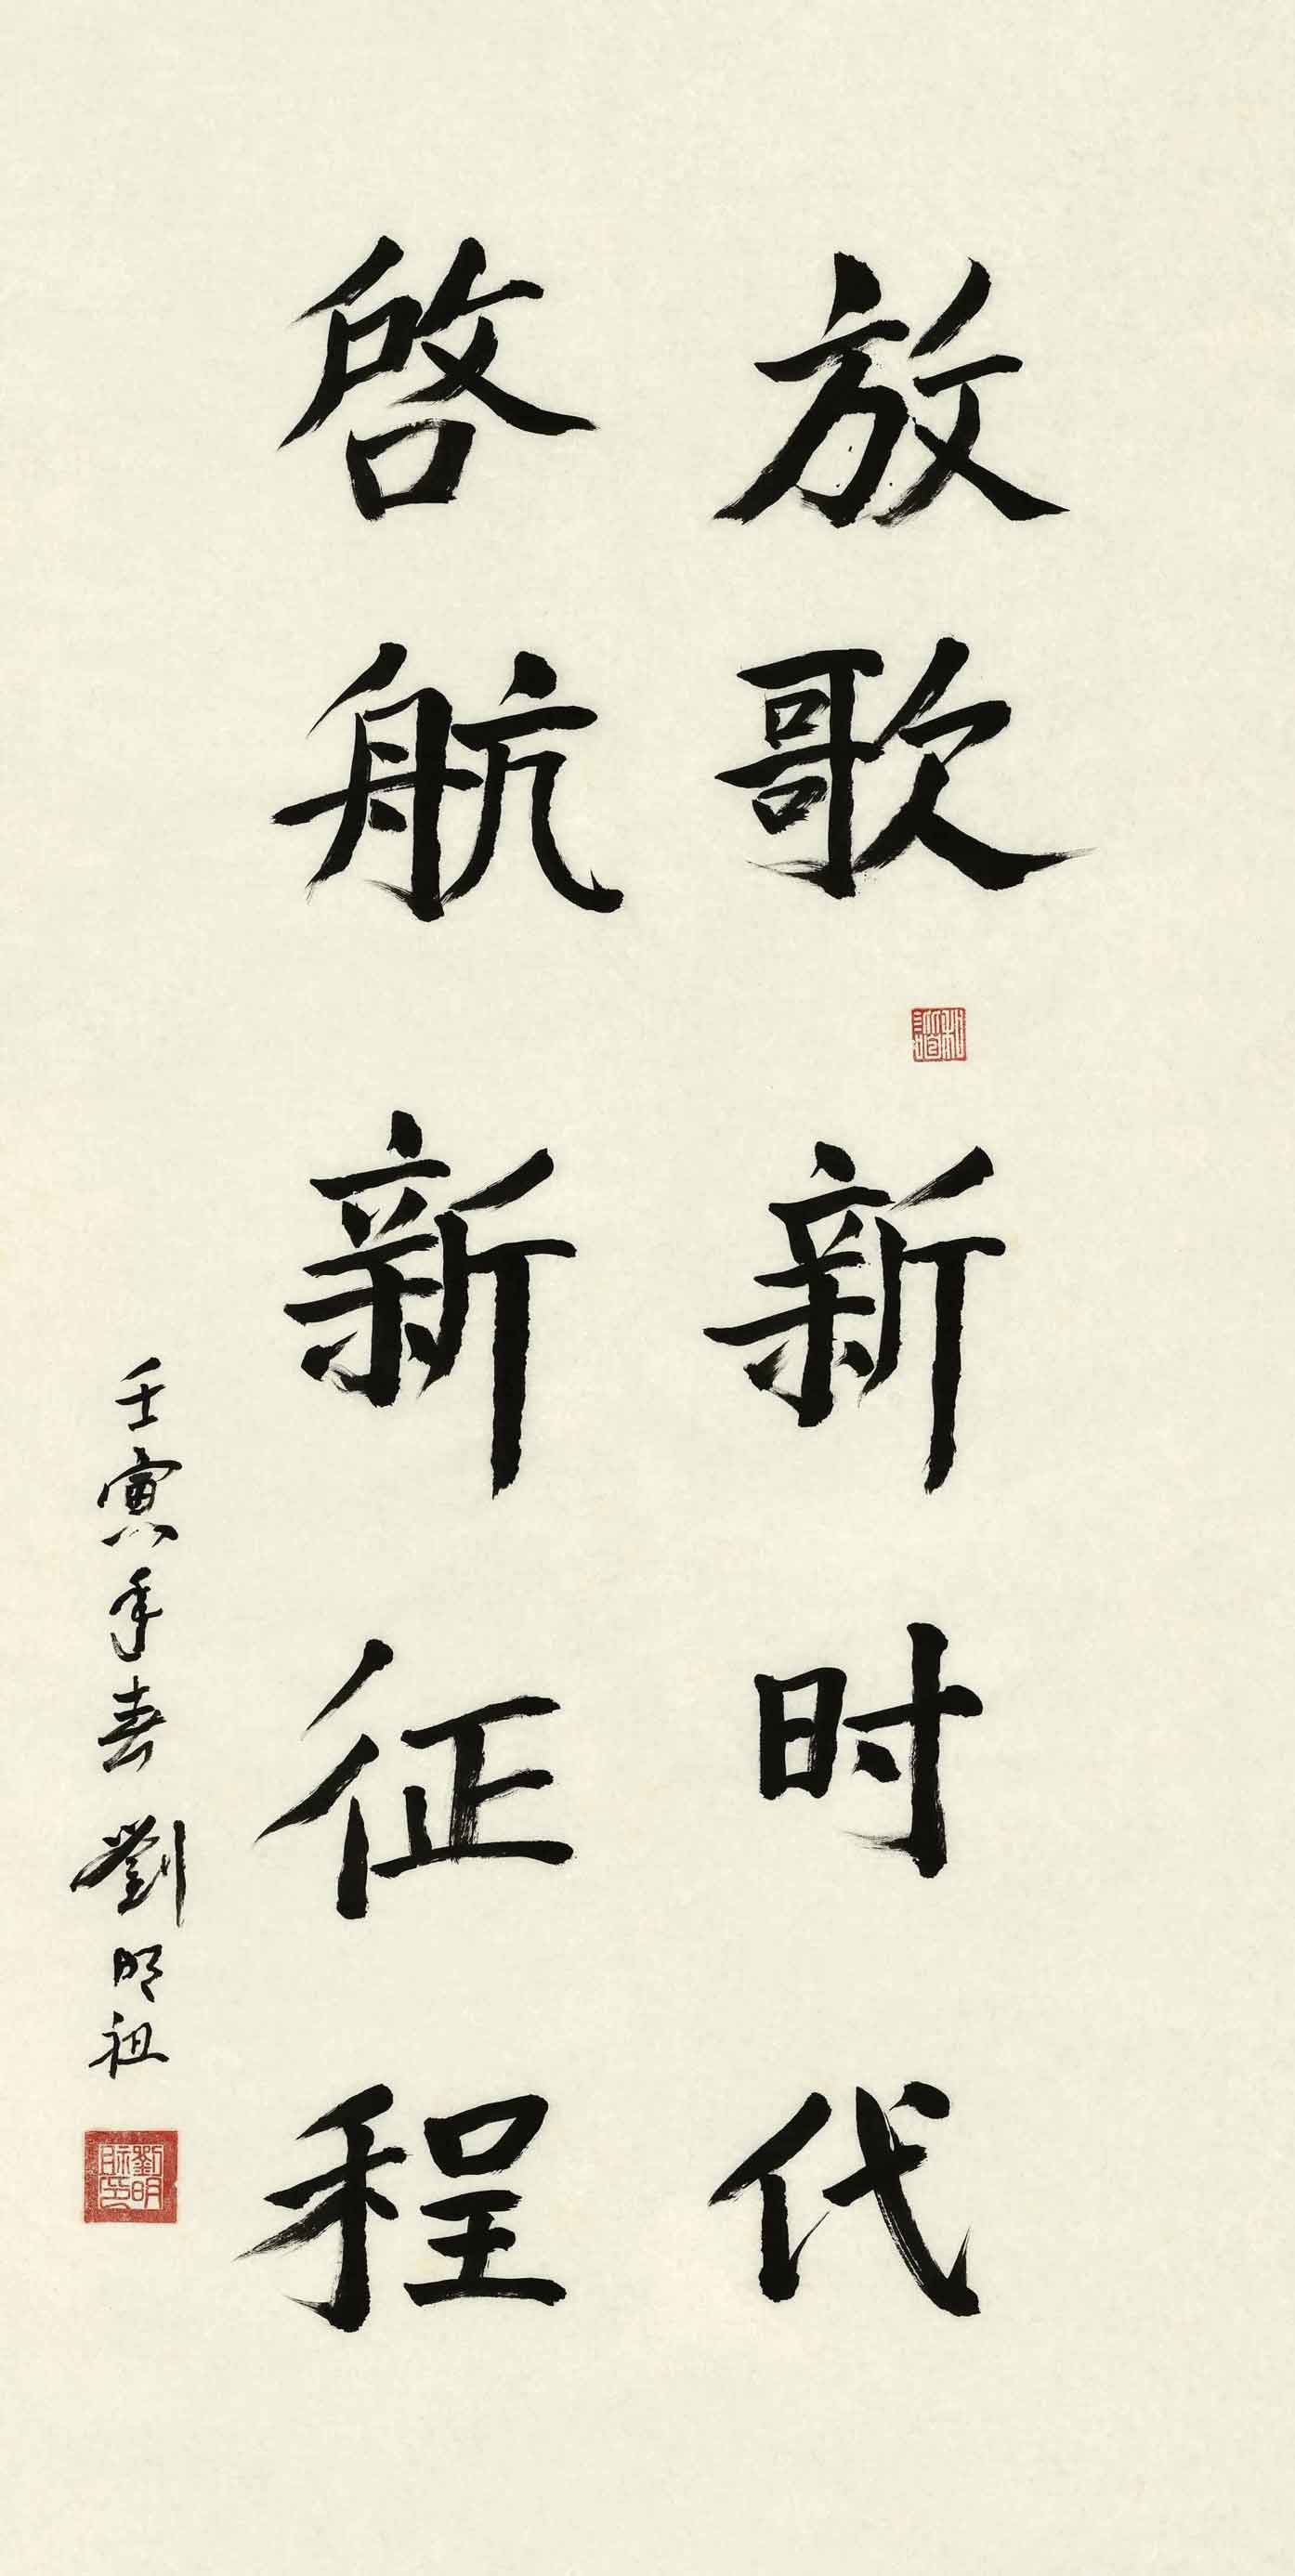 放歌新时代
啓航新征程
壬寅年春 劉明祖
劉明祖印